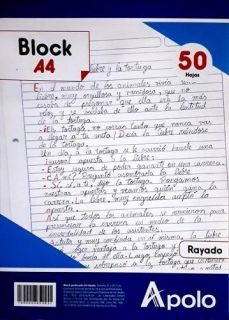 Block
A4
50
Hojas
liebre y la tortuga
En el mundo de los animales vivía una
liebre, muy orgullosa y vanidosa, que no
de pregonar que ella era la más
veloz y se burlaba de ello ante la lentitud
de la tortuga.
- ¡Eh, tortuga, no corras tanto que nunca vas
a llegar a tu meta! Decía la liebre riéndose
de la tortuga.
Un día, a la tortuga se le ocurrió hacerle una
inusual apuesta a la liebre:
- Estoy segura de poder ganarte en una carrera.
- ¿A mí? Preguntó asombrada la liebre.
- Sí, sí, a ti, dijo la tortuga. Pongamos
nuestras apuestas y veamos quién gana la
carrera. La liebre, muy engreída aceptó la
apuesta.
Así que todos los animales se reunieron para
presenciar la carrera
de los asistentes.
Astuta y muy confiada en sí misma, la liebre
ventaja a la tortuga y
la tortuga
Rayado
Apolo